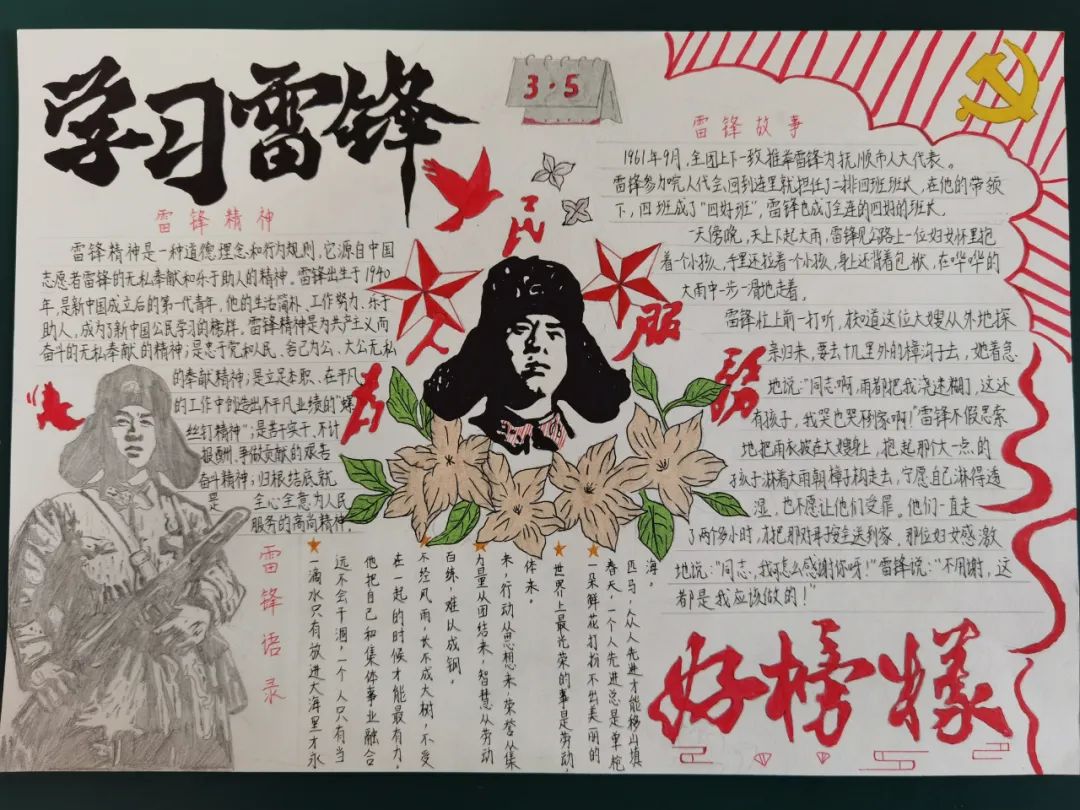 学习雷锋
3·5
雷锋精神
雷锋精神是一种道德理念和行为规则,它源自中国
志愿者雷锋的无私奉献和乐于助人的精神。雷锋出生于1940
年,是新中国成立后的第一代青年,他的生活简朴、工作努力、乐于
助人,成为了新中国公民学习的榜样。雷锋精神是为共产主义而
奋斗的无私奉献的精神;是忠于党和人民、舍己为公、大公无私
的奉献精神;是立足本职、在平凡
的工作中创造出不平凡业绩的"螺
丝钉精神";是苦干实干、不计
报酬、争做贡献的艰苦
奋斗精神,归根结底就
是全心全意为人民
服务的高尚精神。
为人民服务
雷锋故事
1961年9月,全团上下一致推举雷锋为抚顺市人大代表。
雷锋参加完人代会,回到连里就担任了二排四班班长,在他的带领
下,四班成了"四好班",雷锋也成了全连的四好的班长。
一天傍晚,天上下起大雨,雷锋见公路上一位妇女怀里抱
着个小孩,手里还拉着一个小孩,身上还背着包袱,在哗哗的
大雨中一步一滑地走着。
雷锋忙上前一打听,才知道这位大嫂从外地探
亲归来,要去十几里外的樟沟子去,她着急
地说:"同志啊,雨都把我浇迷糊了,这还
有孩子,我哭也哭不到家啊!"雷锋不假思索
地把雨衣披在大嫂身上,抱起那个大一点的
孩子淋着大雨朝樟子沟走去,宁愿自己淋得透
湿,也不愿让他们受罪。他们一直走
了两个多小时,才把那对母子安全送到家。那位妇女感激
地说:"同志,我可怎么感谢你呀!"雷锋说:"不用谢,这
都是我应该做的!"
雷锋语录
一滴水只有放进大海里才永
远不会干涸,一个人只有当
他把自己和集体事业融合
在一起的时候才能最有力,
不经风雨,长不成大树,不受
百练,难以成钢,
力量从团结来,智慧从劳动
来,行动从思想来,荣誉从集
体来。
世界上最光荣的事是劳动,
一朵鲜花打扮不出美丽的
春天,一个人先进总是单枪
匹马,众人先进才能移山填
海。
好榜样